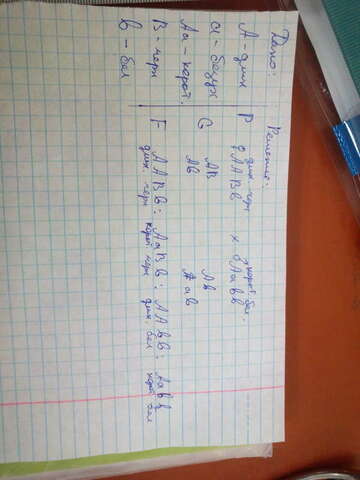 Дано:
А - длин
а - безух
Аа - корот.
В - черн
в - бел
Решение:
длин. черн корот. бел.
Р ♀ААВв х ♂Аавв
G АВ Ав
Ав ав
F ААВв: АаВв: ААвв: Аавв
длин. черн корот. черн длин. бел корот. бел